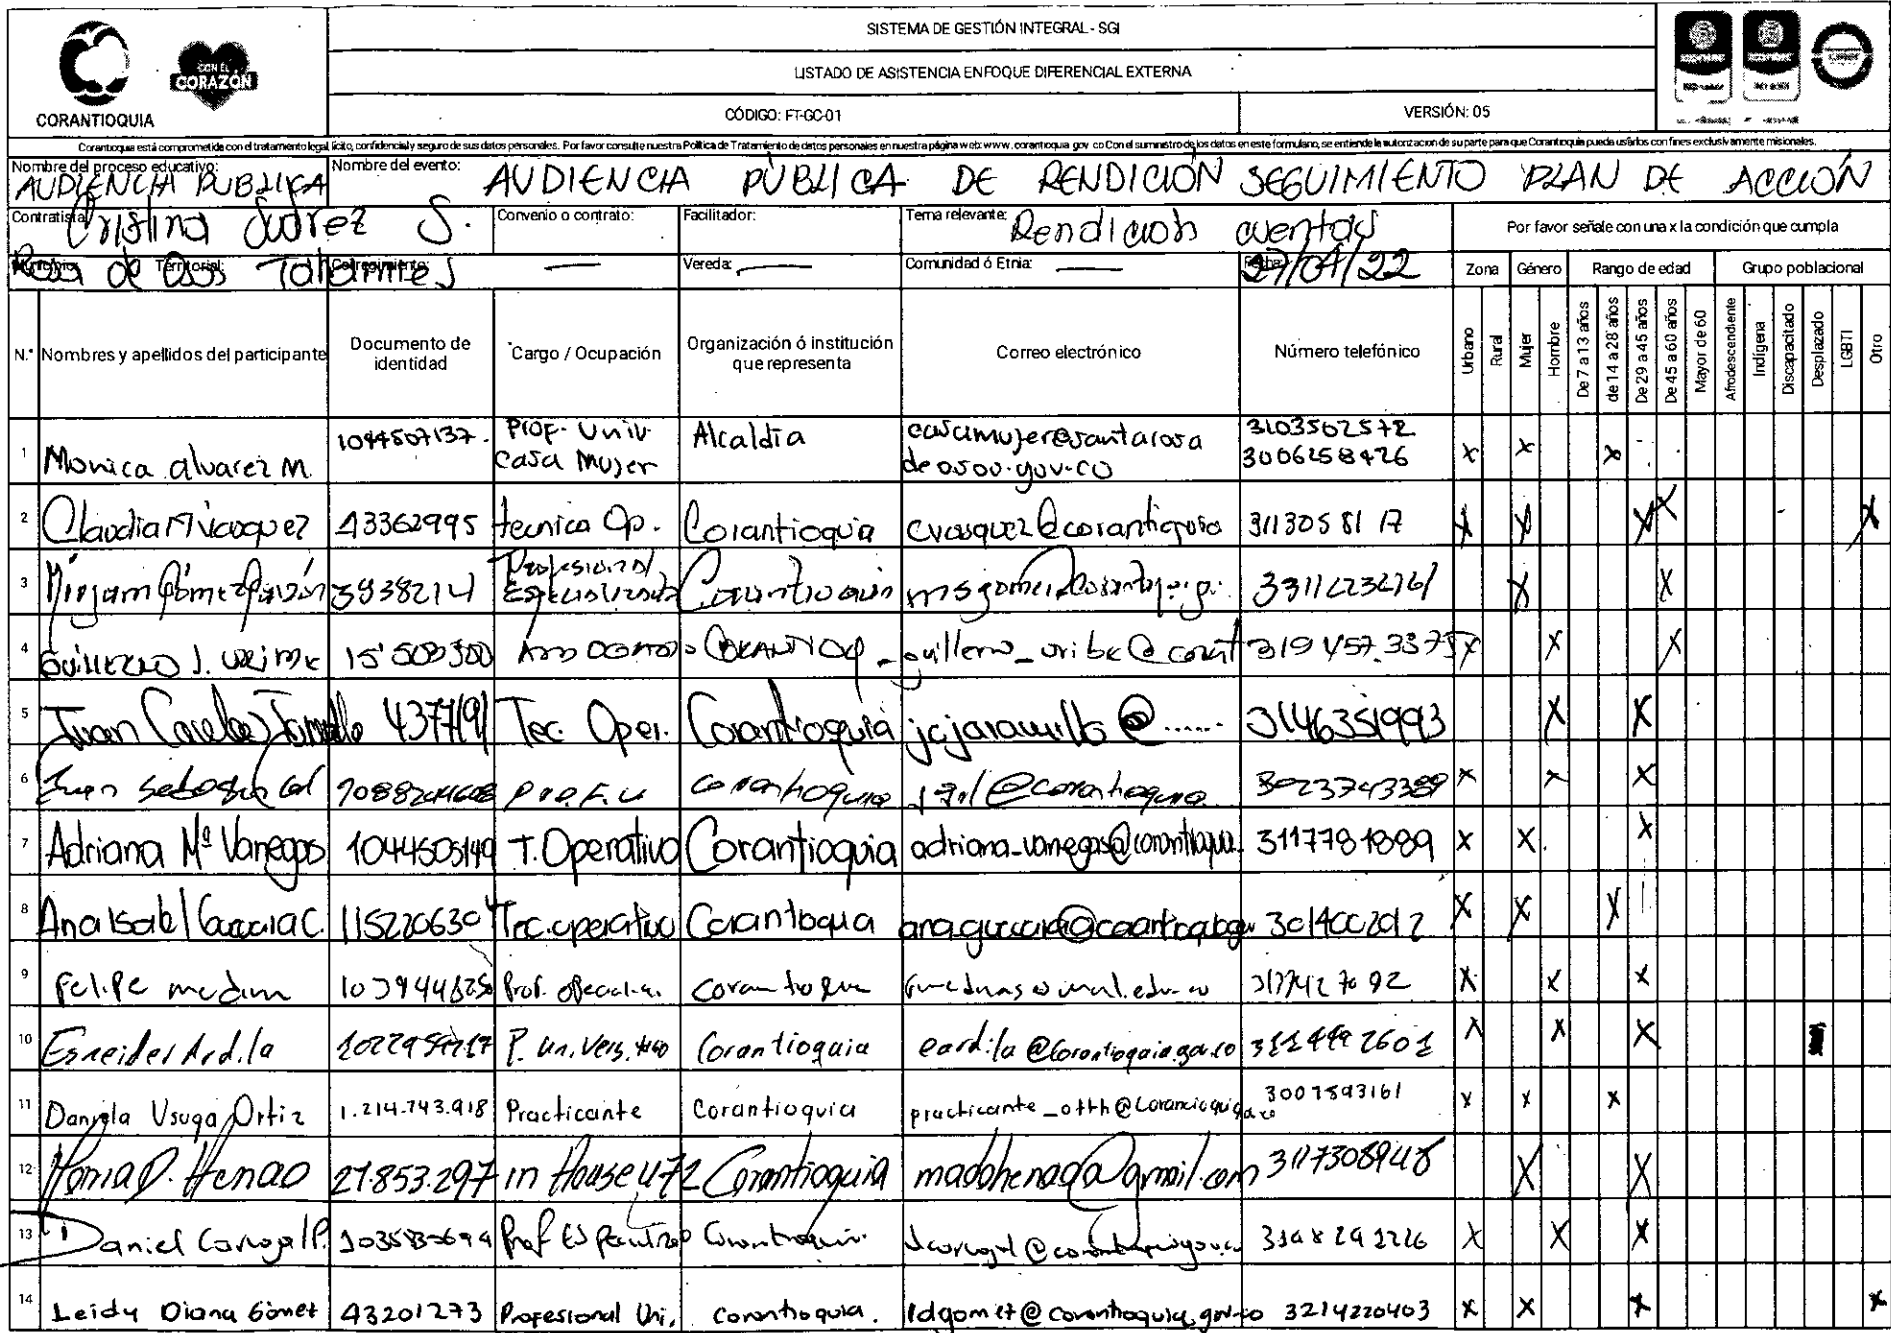 CORANTIOQUIA
CON EL CORAZÓN
SISTEMA DE GESTIÓN INTEGRAL - SGI
LISTADO DE ASISTENCIA ENFOQUE DIFERENCIAL EXTERNA
CÓDIGO: FT-GC-01 VERSIÓN: 05
Corantioquia está comprometida con el tratamiento legal, lícito, confidencial y seguro de sus datos personales. Por favor consulte nuestra Política de Tratamiento de datos personales en nuestra página web: www.corantioquia.gov.co Con el suministro de los datos en este formulario, se entiende la autorización de su parte para que Corantioquia pueda usarlos con fines exclusivamente misionales.
Nombre del proceso educativo: AUDIENCIA PUBLICA Nombre del evento: AUDIENCIA PÚBLICA DE RENDICIÓN SEGUIMIENTO PLAN DE ACCIÓN
Contratista: Cristina Suárez S. Convenio o contrato: Facilitador: Tema relevante: Rendición cuentas Por favor señale con una x la condición que cumpla
Territorial: Rosa de Osos Tahamies Corregimiento: — Vereda: — Comunidad ó Etnia: — 27/04/22 Zona Género Rango de edad Grupo poblacional
N.° Nombres y apellidos del participante Documento de identidad Cargo / Ocupación Organización ó institución que representa Correo electrónico Número telefónico Urbano Rural Mujer Hombre De 7 a 13 años de 14 a 28 años De 29 a 45 años De 45 a 60 años Mayor de 60 Afrodescendiente Indígena Discapacitado Desplazado LGBTI Otro
1 Monica alvarez M. 1044507137. Prof. Univ. Casa Mujer Alcaldía casamujer@santarosadeosos.gov.co 3103562572 3006258426 x x x
2 Claudia M Vasquez 43362995 tecnica Op. Corantioquia cvasquez@corantioquia 3113058117 x x x x x
3 3938214 Profesional Especializado Corantioquia x x
4 Guillermo J. Uribe 15'500300 guillermo_uribe@corant 319 457.3375 x x x
5 Juan Jaramillo 4377191 Tec. Oper. Corantioquia jcjaramillo@...... 3146351993 x x
6 Juan Sebastian Gil Prof. U corantioquia jgil@corantioquia 3023743389 x x x
7 Adriana Mª Vanegas 1044505149 T. Operativo Corantioquia adriana_vanegas@corantioquia. 3117781889 x x. x
8 Ana Isabel C. 1152206304 Tec. operativo Corantioquia 3014002012 x x x
9 Felipe medina Prof. especiali. corantioquia x x x
10 Esneider Ardila P. Univers. Corantioquia eardila@Corantioquia.gov.co 311 499 2601 x x x
11 Daniela Usuga Ortiz 1.214.743.918 Practicante Corantioquia 3007593161 x x x
12 Maria D. Henao 21.853.297 in House 472 Corantioquia madohenao@gmail.com 3117308948 x x
13 Daniel Carvajal P. Prof Corantioquia x x x
14 Leidy Diana Gómez 43201273 Profesional Uni. corantioquia. ldgomez@corantioquia.gov.co 3214220403 x x x x